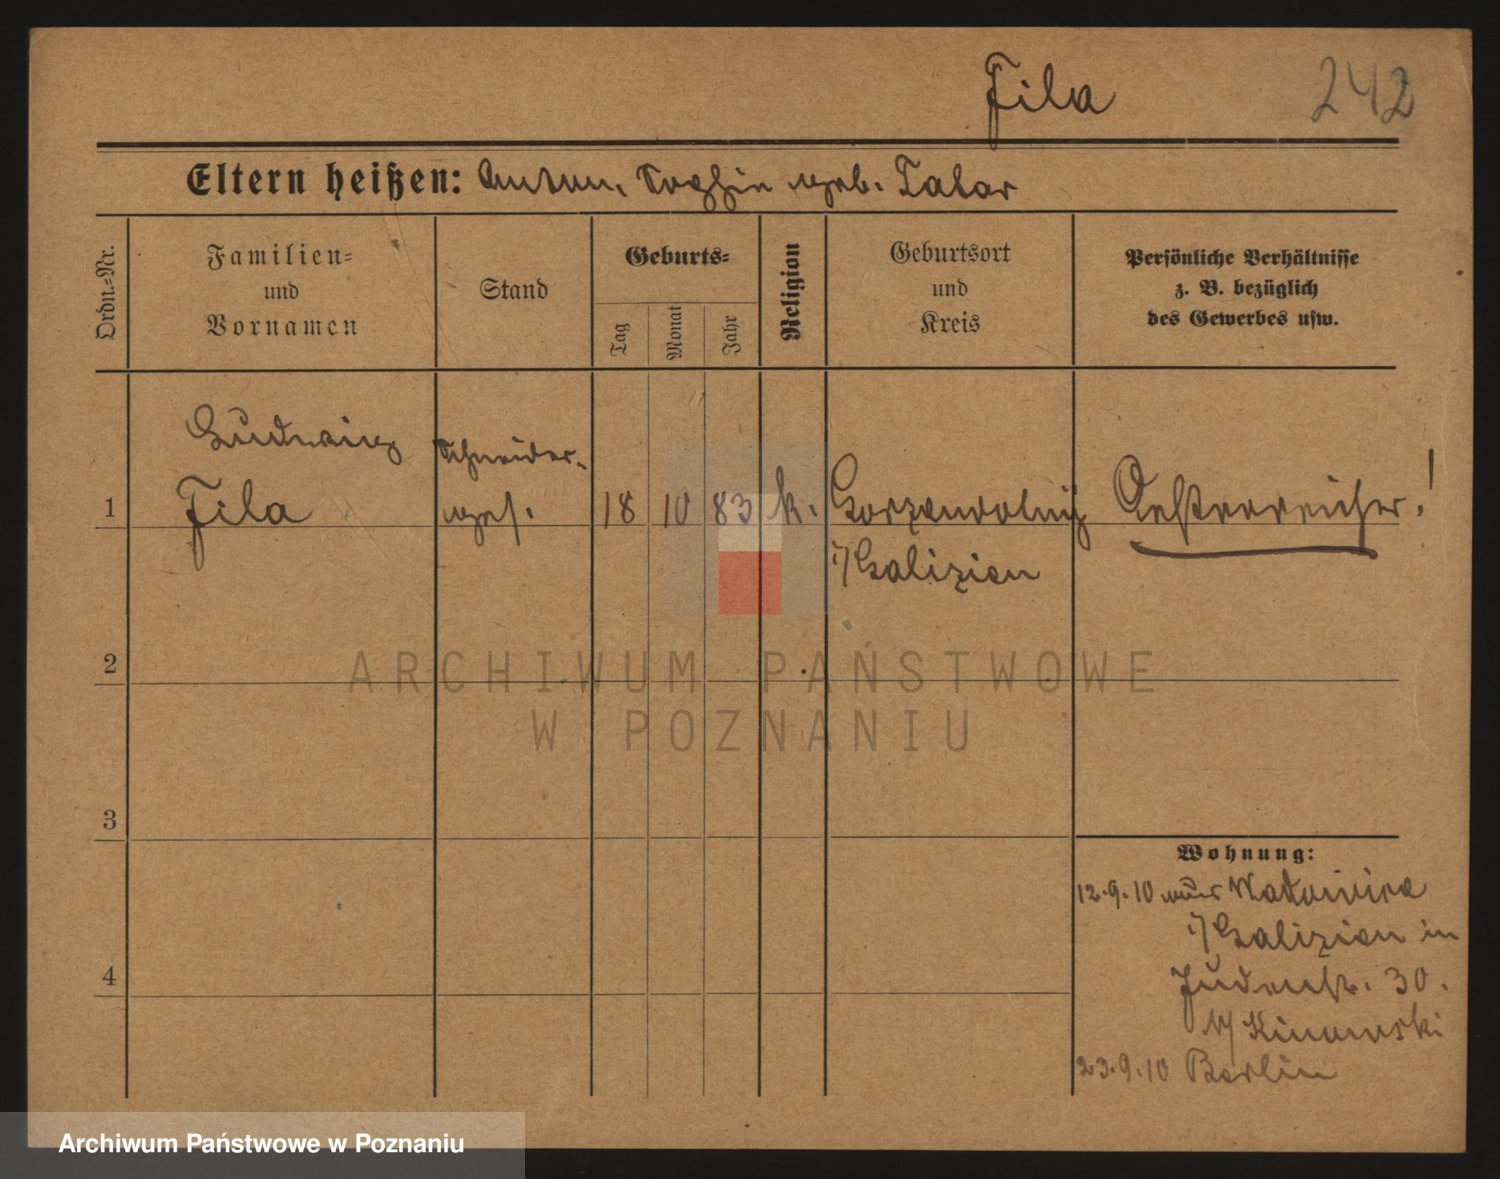 Fila 242
Eltern heißen: Anton, Sophie geb. Tatar
Ordn.-Nr.
Familien-
und
Vornamen
Stand
Geburts-
Tag
Monat
Jahr
Religion
Geburtsort
und
Kreis
Persönliche Verhältnisse
z. B. bezüglich
des Gewerbes usw.
Ludwig
Schneider-
1 Fila ges. 18 10 83 k. Oesterreicher!
i/Galizien
2
ARCHIWUM PAŃSTWOWE
W POZNANIU
3
Wohnung:
12.9.10 aus
i/Galizien in
4
Judenstr. 30.
b/
23.9.10 Berlin
Archiwum Państwowe w Poznaniu